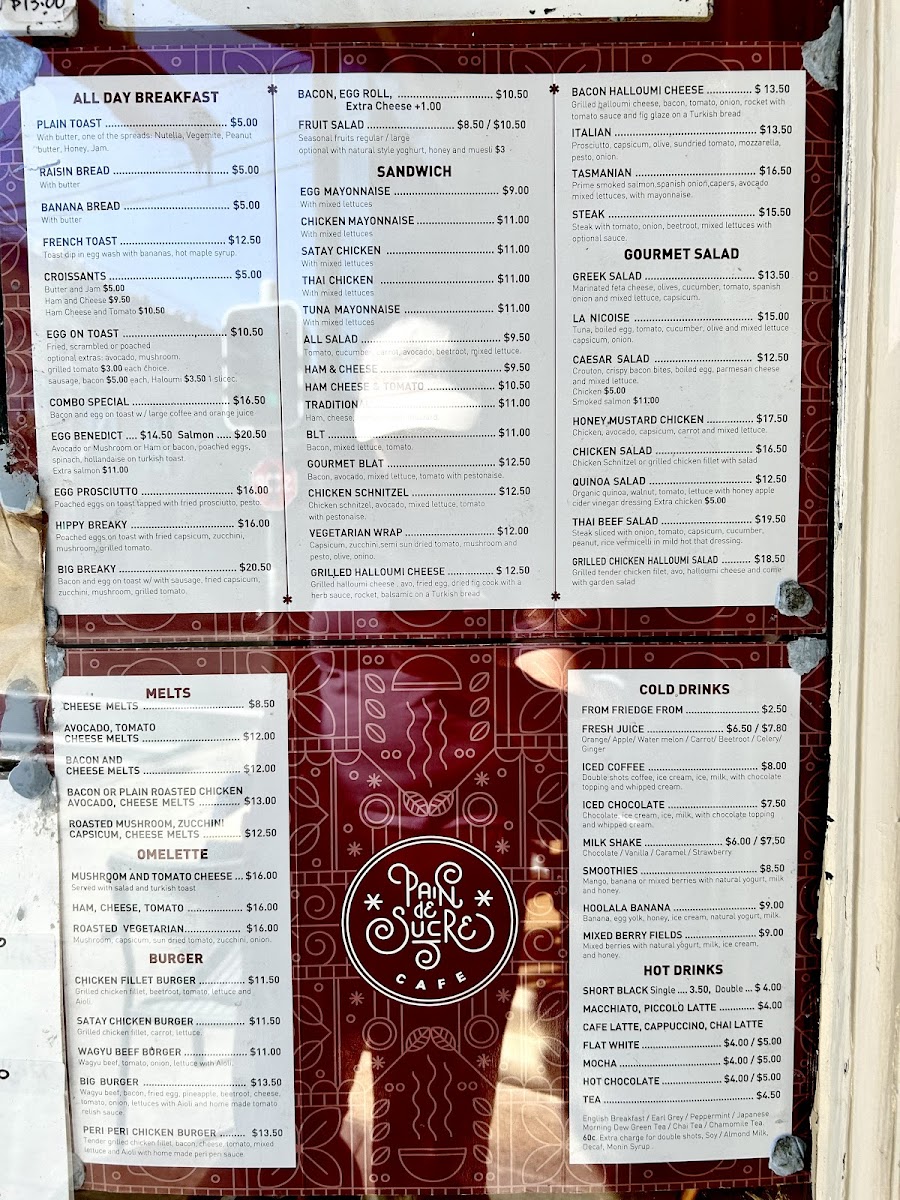 $13.00
ALL DAY BREAKFAST
PLAIN TOAST $5.00
With butter, one of the spreads: Nutella, Vegemite, Peanut
butter, Honey, Jam.
RAISIN BREAD $5.00
With butter
BANANA BREAD $5.00
With butter
FRENCH TOAST $12.50
Toast dip in egg wash with bananas, hot maple syrup.
CROISSANTS $5.00
Butter and Jam $5.00
Ham and Cheese $9.50
Ham Cheese and Tomato $10.50
EGG ON TOAST $10.50
Fried, scrambled or poached
optional extras: avocado, mushroom.
grilled tomato $3.00 each choice.
sausage, bacon $5.00 each, Haloumi $3.50 1 slicec.
COMBO SPECIAL $16.50
Bacon and egg on toast w / large coffee and orange juice
EGG BENEDICT .... $14.50 Salmon ..... $20.50
Avocado or Mushroom or Ham or bacon, poached eggs,
spinach, hollandaise on turkish toast.
Extra salmon $11.00
EGG PROSCIUTTO $16.00
Poached eggs on toast tapped with fried prosciutto, pesto.
HIPPY BREAKY $16.00
Poached eggs on toast with fried capsicum, zucchini,
mushroom, grilled tomato.
BIG BREAKY $20.50
Bacon and egg on toast w/ with sausage, fried capsicum,
zucchini, mushroom, grilled tomato.
BACON, EGG ROLL, $10.50
Extra Cheese +1.00
FRUIT SALAD $8.50 / $10.50
Seasonal fruits regular / large
optional with natural style yoghurt, honey and muesli $3
SANDWICH
EGG MAYONNAISE $9.00
With mixed lettuces
CHICKEN MAYONNAISE $11.00
With mixed lettuces
SATAY CHICKEN $11.00
With mixed lettuces
THAI CHICKEN $11.00
With mixed lettuces
TUNA MAYONNAISE $11.00
With mixed lettuces
ALL SALAD $9.50
Tomato, cucumber, carrot, avocado, beetroot, mixed lettuce.
HAM & CHEESE $9.50
HAM CHEESE & TOMATO $10.50
TRADITIONAL $11.00
Ham, cheese,
BLT $11.00
Bacon, mixed lettuce, tomato.
GOURMET BLAT $12.50
Bacon, avocado, mixed lettuce, tomato with pestonaise.
CHICKEN SCHNITZEL $12.50
Chicken schnitzel, avocado, mixed lettuce, tomato
with pestonaise.
VEGETARIAN WRAP $12.00
Capsicum, zucchini,semi sun dried tomato, mushroom and
pesto, olive, onino.
GRILLED HALLOUMI CHEESE $ 12.50
Grilled halloumi cheese , avo, fried egg, dried fig cook with a
herb sauce, rocket, balsamic on a Turkish bread
BACON HALLOUMI CHEESE $ 13.50
Grilled halloumi cheese, bacon, tomato, onion, rocket with
tomato sauce and fig glaze on a Turkish bread
ITALIAN $13.50
Prosciutto, capsicum, olive, sundried tomato, mozzarella,
pesto, onion.
TASMANIAN $16.50
Prime smoked salmon,spanish onion,capers, avocado
mixed lettuces, with mayonnaise.
STEAK $15.50
Steak with tomato, onion, beetroot, mixed lettuces with
optional sauce.
GOURMET SALAD
GREEK SALAD $13.50
Marinated feta cheese, olives, cucumber, tomato, spanish
onion and mixed lettuce, capsicum.
LA NICOISE $15.00
Tuna, boiled egg, tomato, cucumber, olive and mixed lettuce
capsicum, onion.
CAESAR SALAD $12.50
Crouton, crispy bacon bites, boiled egg, parmesan cheese
and mixed lettuce.
Chicken $5.00
Smoked salmon $11.00
HONEY MUSTARD CHICKEN $17.50
Chicken, avocado, capsicum, carrot and mixed lettuce.
CHICKEN SALAD $16.50
Chicken Schnitzel or grilled chicken fillet with salad
QUINOA SALAD $12.50
Organic quinoa, walnut, tomato, lettuce with honey apple
cider vinegar dressing Extra chicken $5.00
THAI BEEF SALAD $19.50
Steak sliced with onion, tomato, capsicum, cucumber,
peanut, rice vermicelli in mild hot thai dressing.
GRILLED CHICKEN HALLOUMI SALAD $18.50
Grilled tender chicken filet, avo, halloumi cheese and come
with garden salad
MELTS
CHEESE MELTS $8.50
AVOCADO, TOMATO
CHEESE MELTS $12.00
BACON AND
CHEESE MELTS $12.00
BACON OR PLAIN ROASTED CHICKEN
AVOCADO, CHEESE MELTS $13.00
ROASTED MUSHROOM, ZUCCHINI
CAPSICUM, CHEESE MELTS $12.50
OMELETTE
MUSHROOM AND TOMATO CHEESE ... $16.00
Served with salad and turkish toast
HAM, CHEESE, TOMATO $16.00
ROASTED VEGETARIAN $16.00
Mushroom, capsicum, sun dried tomato, zucchini, onion.
BURGER
CHICKEN FILLET BURGER $11.50
Grilled chicken fillet, beetroot, tomato, lettuce and
Aioli
SATAY CHICKEN BURGER $11.50
Grilled chicken fillet, carrot, lettuce.
WAGYU BEEF BURGER $11.00
Wagyu beef, tomato, onion, lettuce with Aioli
BIG BURGER $13.50
Wagyu beef, bacon, fried egg, pineapple, beetroot, cheese,
tomato, onion, lettuces with Aioli and home made tomato
relish sauce.
PERI PERI CHICKEN BURGER $13.50
Tender grilled chicken fillet, bacon, cheese, tomato, mixed
lettuce and Aioli with home made peri peri sauce.
PAIN
de
SUCRE
CAFE
COLD DRINKS
FROM FRIEDGE FROM $2.50
FRESH JUICE $6.50 / $7.80
Orange/ Apple/ Water melon / Carrot/ Beetroot / Celery/
Ginger
ICED COFFEE $8.00
Double shots coffee, ice cream, ice, milk, with chocolate
topping and whipped cream.
ICED CHOCOLATE $7.50
Chocolate, ice cream, ice, milk, with chocolate topping
and whipped cream.
MILK SHAKE $6.00 / $7,50
Chocolate / Vanilla / Caramel / Strawberry
SMOOTHIES $8.50
Mango, banana or mixed berries with natural yogurt, milk
and honey.
HOOLALA BANANA $9.00
Banana, egg yolk, honey, ice cream, natural yogurt, milk.
MIXED BERRY FIELDS $9.00
Mixed berries with natural yogurt, milk, ice cream.
and honey.
HOT DRINKS
SHORT BLACK Single .... 3.50, Double ... $ 4.00
MACCHIATO, PICCOLO LATTE $4.00
CAFE LATTE, CAPPUCCINO, CHAI LATTE
FLAT WHITE $4.00 / $5.00
MOCHA $4.00 / $5.00
HOT CHOCOLATE $4.00 / $5.00
TEA $4.50
English Breakfast / Earl Grey / Peppermint / Japanese
Morning Dew Green Tea / Chai Tea / Chamomile Tea.
60c. Extra charge for double shots, Soy / Almond Milk,
Decaf, Monin Syrup .